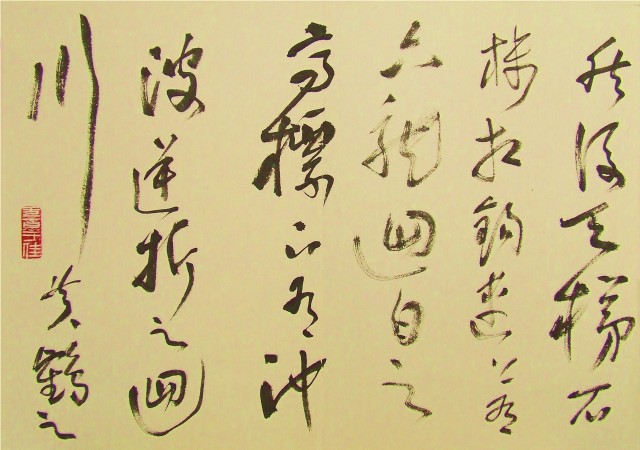 然後天梯石
棧相鉤連上有
六龍迴日之
高標下有沖
波逆折之迴
川
黃鶴之